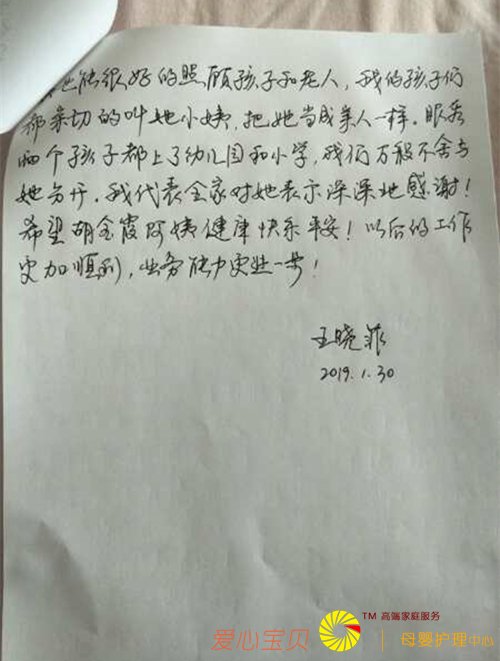 也能很好的照顾孩子和老人,我的孩子们
都亲切的叫她小姨,把她当成亲人一样.眼看
两个孩子都上了幼儿园和小学,我们万般不舍与
她分开.我代表全家对她表示深深地感谢!
希望胡金霞阿姨健康快乐平安!以后的工作
更加顺利,业务能力更进一步!
王晓菲
2019.1.30
TM 高端家庭服务
爱心宝贝 母婴护理中心